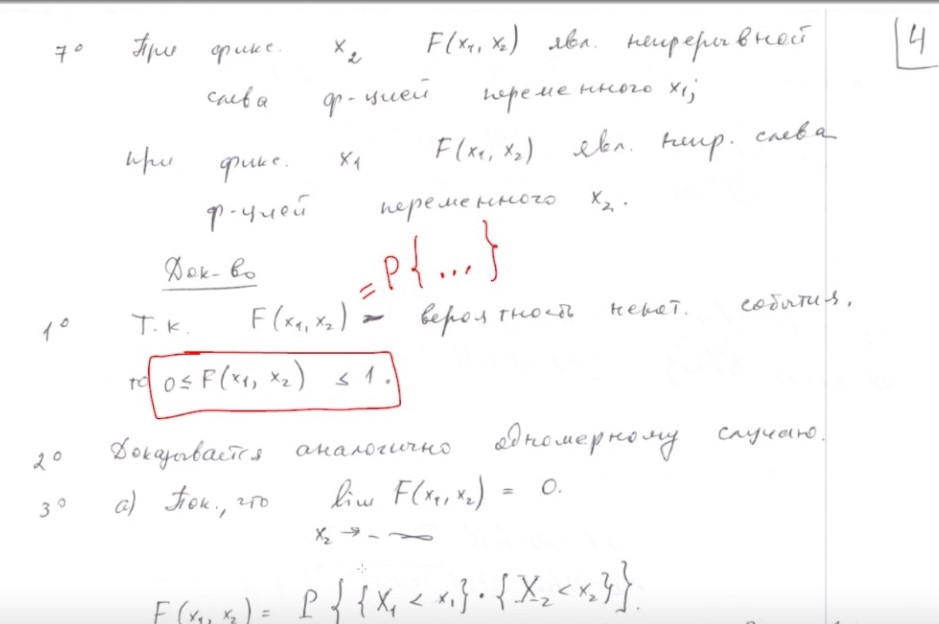 4
7° При фикс. x₂ F(x₁, x₂) явл. непрерывной
слева ф-цией переменного x₁;
при фикс. x₁ F(x₁, x₂) явл. непр. слева
ф-цией переменного x₂.
Док-во
= P{...}
1° Т.к. F(x₁, x₂) – вероятность некот. события,
то 0 ≤ F(x₁, x₂) ≤ 1.
2° Доказывается аналогично одномерному случаю.
3° а) Пок., что lim F(x₁, x₂) = 0.
x₂ → -∞
F(x₁, x₂) = P{{X₁ < x₁}·{X₂ < x₂}}.